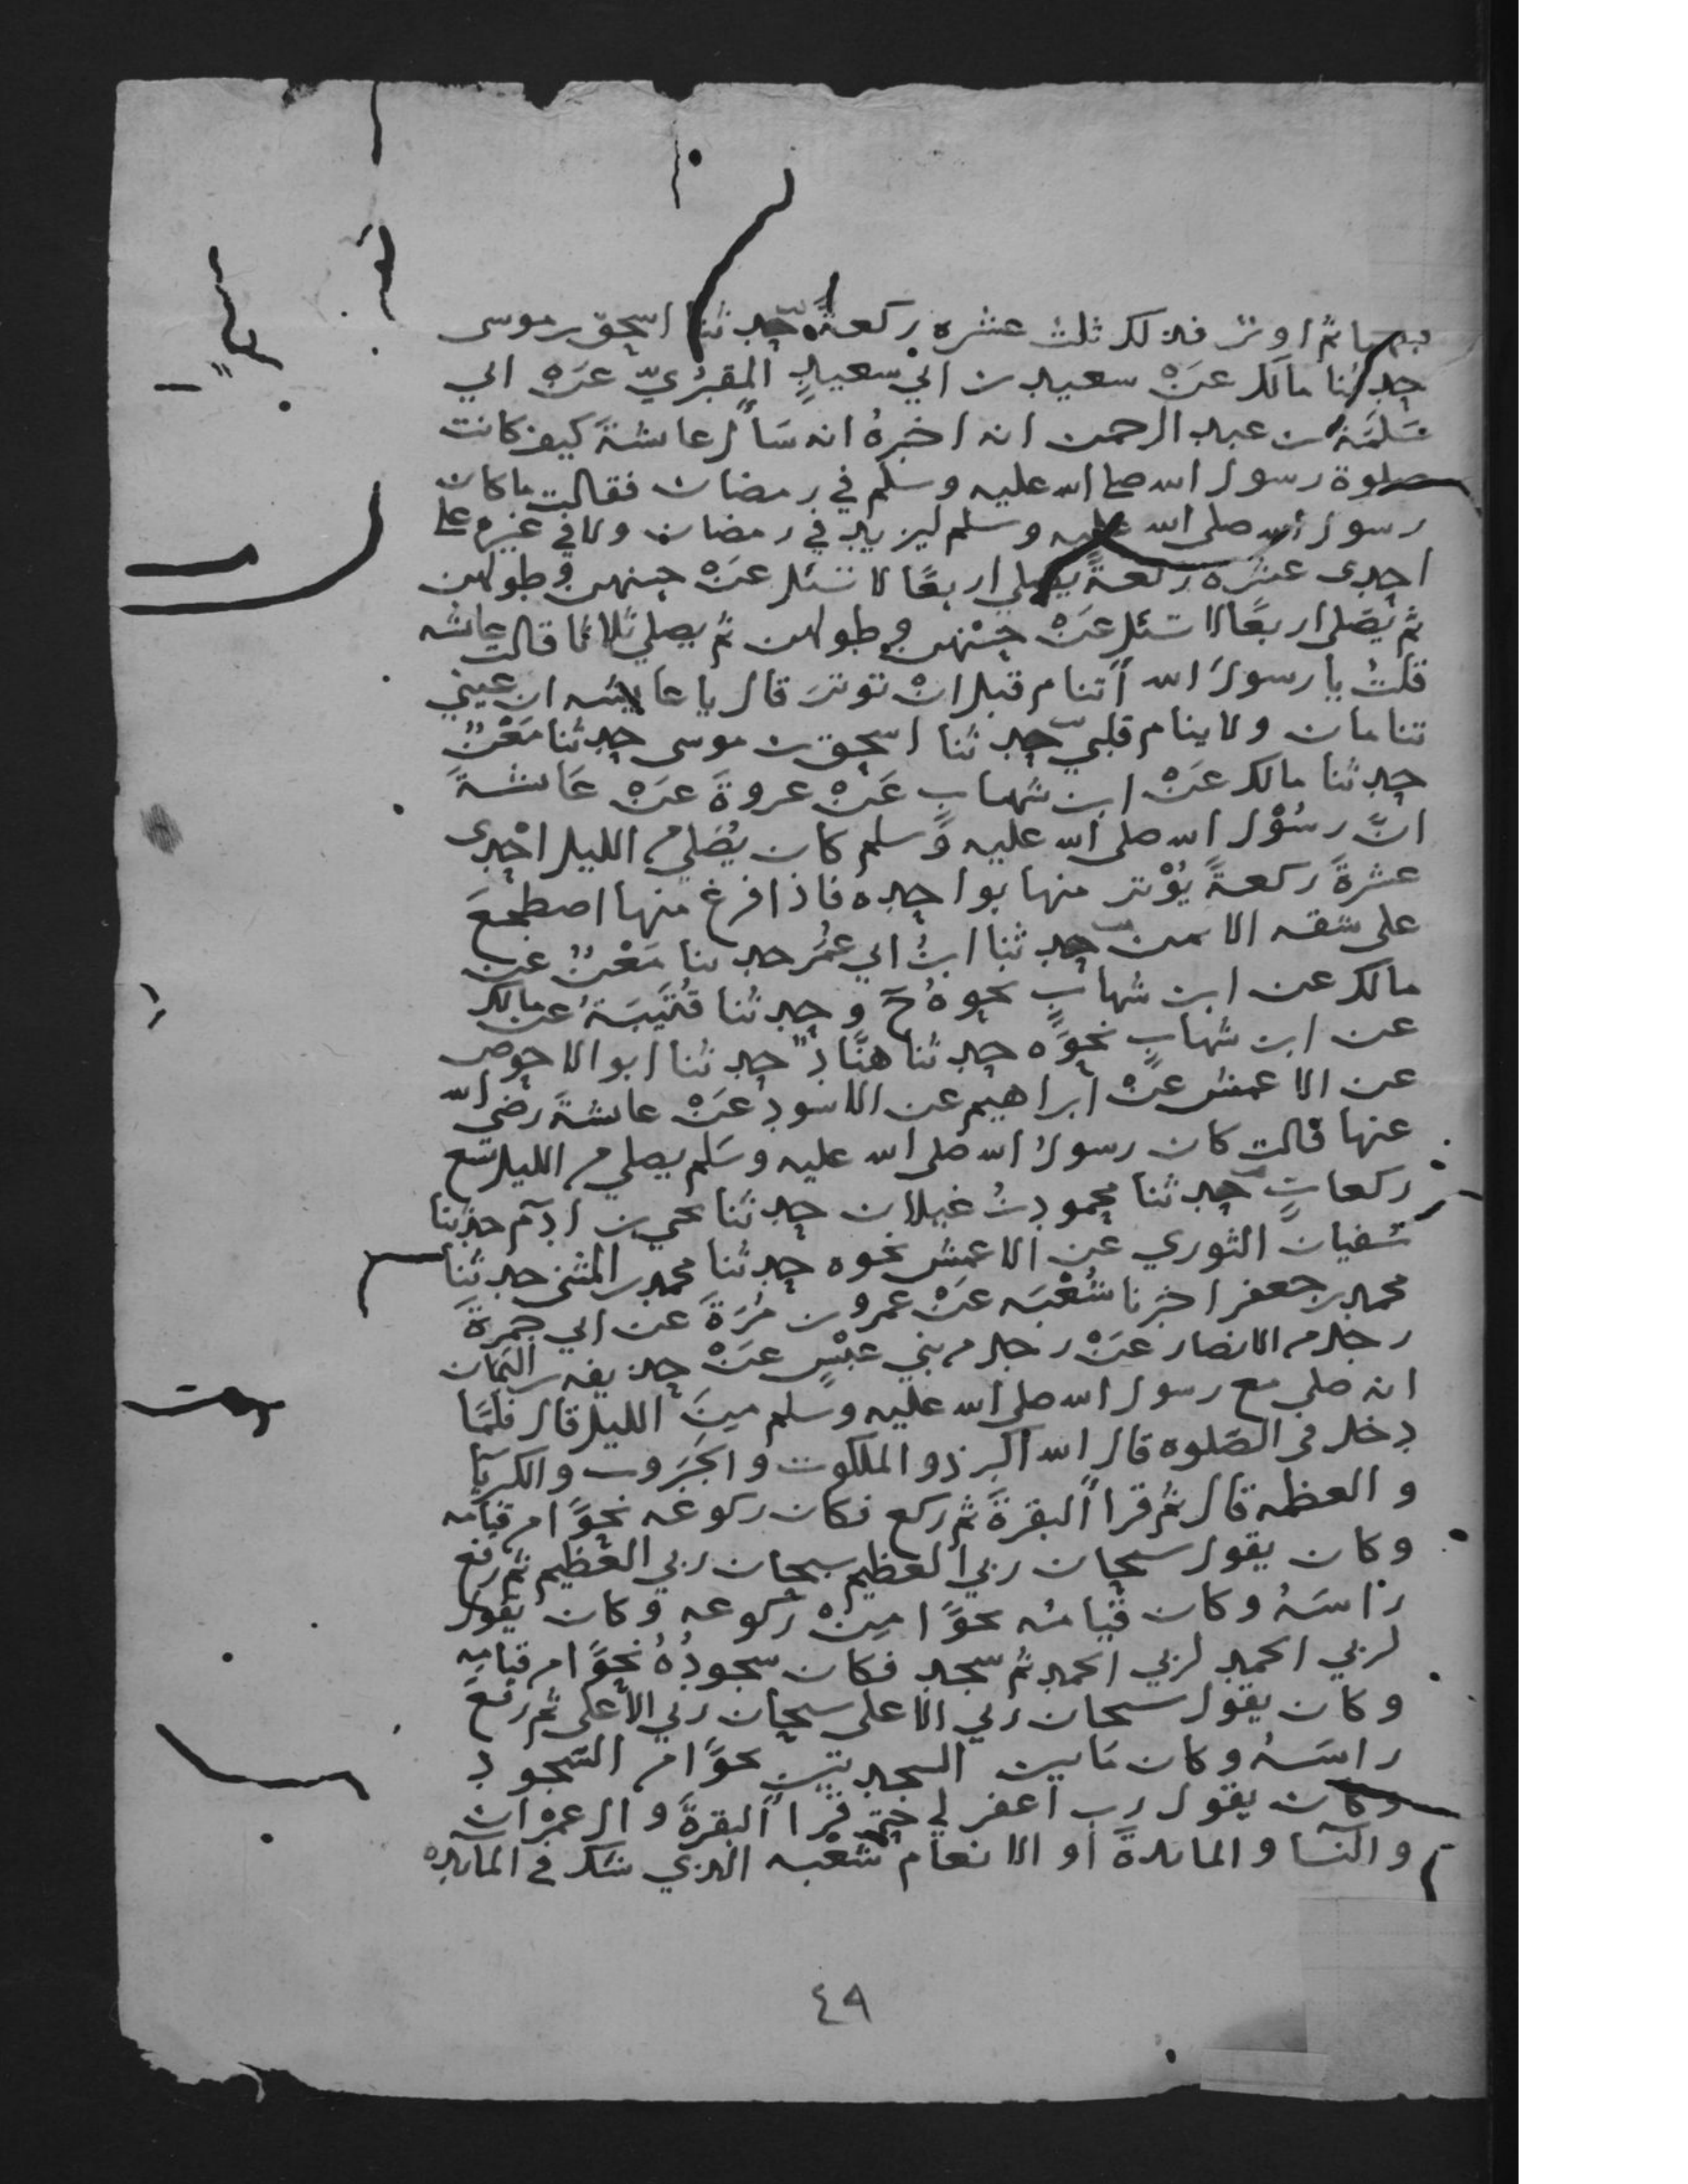 ثم اوتر فذلك ثلث عشره ركعةً حدثنا اسحق بن موسى
حدثنا مالك عَنْ سعيد بن ابي سعيدٍ المقبُريّ عَنْ ابي
سَلَمَة بن عبد الرحمن انه اخبرهُ انه سَأل عائشةَ كيف كانت
صلوة رسول الله صلى الله عليه وسلم في رمضان فقالت ما كان
رسول الله صلى الله عليه وسلم ليزيد في رمضان ولا في غيره على
احدى عشره ركعةً يصلي اربعًا لا تسئل عَنْ حسنهن وطولهن
ثم يُصَلي اربعًا لا تسئل عَنْ حُسْنهن وطولهن ثم يصلي ثلاثا قالت عائشه
قلتُ يا رسولَ الله أتنام قبل انْ توترَ قال يا عايشه ان عيني
تنامان ولا ينام قلبي حدثنا اسحق بن موسى حدثنا مَعْنٌ
حدثنا مالك عَنْ ابن شهابٍ عَنْ عروةَ عَنْ عَائشةَ
انَّ رسُوْل الله صلى الله عليه وسلم كان يُصَلي من الليل احْدى
عشرةَ ركعةً يُوْتر منها بواحده فاذا فرغ منها اضطجعَ
على شقه الايمن حدثنا ابنُ ابي عُمَر حدثنا مَعْنٌ عن
مالك عن ابن شهابٍ نحوهُ ح وحدثنا قُتَيبَةُ عن مالك
عن ابن شهابٍ نحوَه حدثنا هنَّادٌ حدثنا ابو الاحوص
عن الاعمش عَنْ ابراهيم عن الاسود عَنْ عائشةَ رضي الله
عنها قالت كان رسولُ الله صلى الله عليه وسَلم يصلي من الليل تسع
ركعاتٍ حدثنا محمود بنُ غيلان حدثنا يحيى بن ادم حدثنا
سُفيان الثوري عن الاعمش نحوه حدثنا محمد بن المثنى حدثنا
محمد بن جعفر اخبرنا شُعْبَه عَنْ عمرو بن مُرَةَ عن ابي حمزةَ
رجل من الانصار عَنْ رجل من بني عبْسٍ عَنْ حذيفه بن اليَمَان
انه صلى مع رسول الله صلى الله عليه وسلم مِنَ الليل قال فلمَّا
دخل في الصَلوه قال الله اكبر ذو الملكوت والجَبَروت والكبريآ
والعظمه قال ثم قرا البقرةَ ثم ركع فكان ركوعه نحوًا من قيامه
وكان يقول سبحان ربي العظيم سبحان ربي العظيم ثم رفع
راسَهُ وكان قيامُه نحوًا مِنْ ركوعه وكان يقول
لربي الحمد لربي الحمد ثم سجد فكان سجودُهُ نحوًا من قيامِه
وكان يقول سبحان ربي الاعلى سبحان ربي الاعلى ثم رفعَ
راسَهُ وكان مَا بين السجدتين نحوًا من السجود
وكان يقول رب اغفر لي حتى قرا البقرةَ وال عمران
والنسا والمائدةَ او الانعام شُعْبه الذي شك في المائده
٤٩